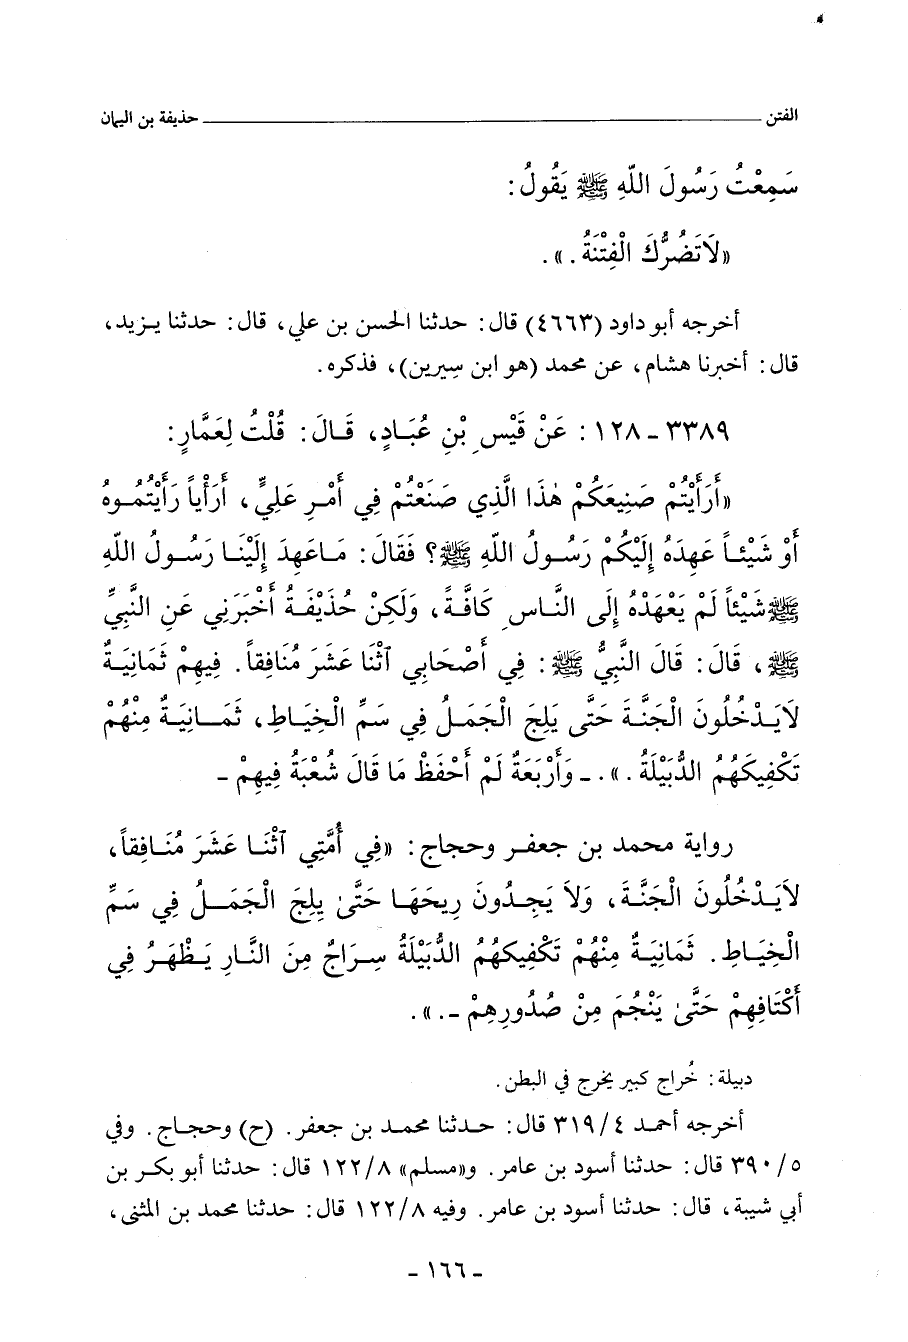 الفتن ــــــــــــــــــــــــــــــــ حذيفة بن اليمان
سَمِعْتُ رَسُولَ اللّهِ ﷺ يَقُولُ:
«لَاتَضُرُّكَ الْفِتْنَةُ.».
أخرجه أبو داود (٤٦٦٣) قال: حدثنا الحسن بن علي، قال: حدثنا يزيد،
قال: أخبرنا هشام، عن محمد (هو ابن سِيرين)، فذكره.
٣٣٨٩ ـ ١٢٨: عَنْ قَيْسِ بْنِ عُبَادٍ، قَالَ: قُلْتُ لِعَمَّارٍ:
«أَرَأَيْتُمْ صَنِيعَكُمْ هٰذَا الَّذِي صَنَعْتُمْ فِي أَمْرِ عَلِيٍّ، أَرَأْياً رَأَيْتُمُوهُ
أَوْ شَيْئاً عَهِدَهُ إِلَيْكُمْ رَسُولُ اللّهِ ﷺ؟ فَقَالَ: مَاعَهِدَ إِلَيْنَا رَسُولُ اللّهِ
ﷺ شَيْئاً لَمْ يَعْهَدْهُ إِلَى النَّاسِ كَافَّةً، وَلَكِنْ حُذَيْفَةُ أَخْبَرَنِي عَنِ النَّبِيِّ
ﷺ، قَالَ: قَالَ النَّبِيُّ ﷺ: فِي أَصْحَابِي ٱثْنَا عَشَرَ مُنَافِقاً. فِيهِمْ ثَمَانِيَةٌ
لَايَدْخُلُونَ الْجَنَّةَ حَتَّى يَلِجَ الْجَمَلُ فِي سَمِّ الْخِيَاطِ، ثَمَانِيَةٌ مِنْهُمْ
تَكْفِيكَهُمُ الدُّبَيْلَةُ.». ـ وَأَرْبَعَةٌ لَمْ أَحْفَظْ مَا قَالَ شُعْبَةُ فِيهِمْ ـ
رواية محمد بن جعفر وحجاج: «فِي أُمَّتِي ٱثْنَا عَشَرَ مُنَافِقاً،
لَايَدْخُلُونَ الْجَنَّةَ، وَلَا يَجِدُونَ رِيحَهَا حَتَّىٰ يِلِجَ الْجَمَلُ فِي سَمِّ
الْخِيَاطِ. ثَمَانِيَةٌ مِنْهُمْ تَكْفِيكَهُمُ الدُّبَيْلَةُ سِرَاجٌ مِنَ النَّارِ يَظْهَرُ فِي
أَكْتَافِهِمْ حَتَّىٰ يَنْجُمَ مِنْ صُدُورِهِمْ ـ.».
دبيلة: خُراج كبير يخرج في البطن.
أخرجه أحمد ٣١٩/٤ قال: حدثنا محمد بن جعفر. (ح) وحجاج. وفي
٣٩٠/٥ قال: حدثنا أسود بن عامر. و«مسلم» ١٢٢/٨ قال: حدثنا أبو بكر بن
أبي شيبة، قال: حدثنا أسود بن عامر. وفيه ١٢٢/٨ قال: حدثنا محمد بن المثنى،
ـ ١٦٦ ـ